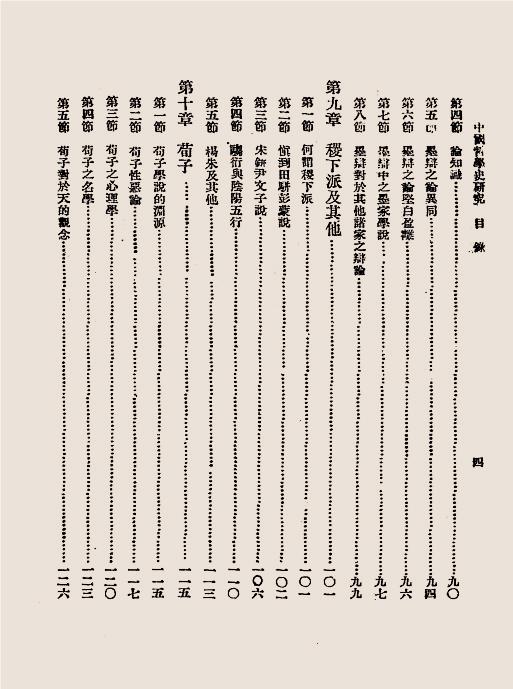 中國哲學史研究 目錄 四
第四節 論知識 九〇
第五節 墨辯之論異同 九四
第六節 墨辯之論堅白盈離 九六
第七節 墨辯中之墨家學說 九七
第八節 墨辯對於其他諸家之辯論 九九
第九章 稷下派及其他 一〇一
第一節 何謂稷下派 一〇一
第二節 愼到田駢彭蒙說 一〇二
第三節 宋鈃尹文子說 一〇六
第四節 鄒衍與陰陽五行 一一〇
第五節 楊朱及其他 一一三
第十章 荀子 一一五
第一節 荀子學說的淵源 一一五
第二節 荀子性惡論 一一七
第三節 荀子之心理學 一二〇
第四節 荀子之名學 一二三
第五節 荀子對於天的觀念 一二六